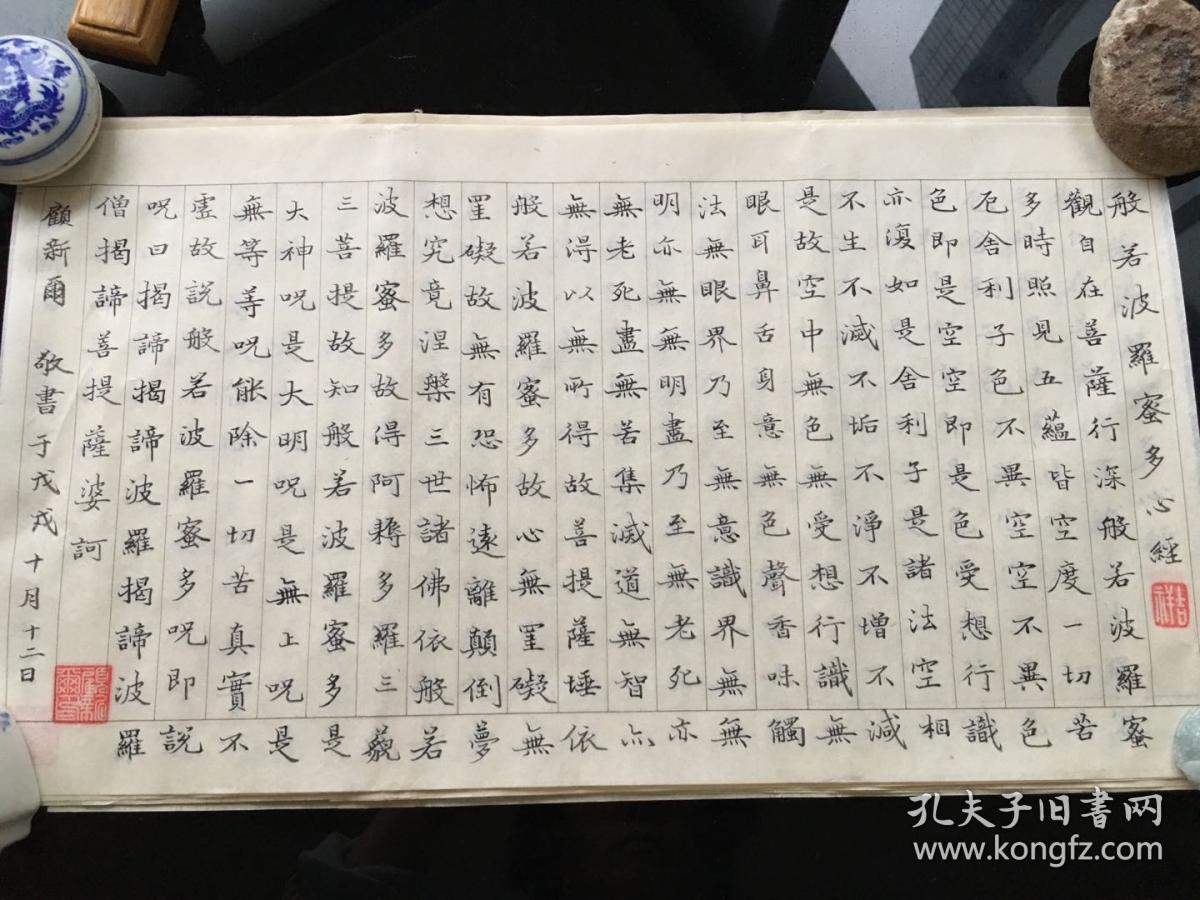 般若波羅蜜多心經
吉祥
觀自在菩薩行深般若波羅蜜
多時照見五蘊皆空度一切苦
厄舍利子色不異空空不異色
色即是空空即是色受想行識
亦復如是舍利子是諸法空相
不生不滅不垢不淨不增不減
是故空中無色無受想行識無
眼耳鼻舌身意無色聲香味觸
法無眼界乃至無意識界無無
明亦無無明盡乃至無老死亦
無老死盡無苦集滅道無智亦
無得以無所得故菩提薩埵依
般若波羅蜜多故心無罣礙無
罣礙故無有恐怖遠離顛倒夢
想究竟涅槃三世諸佛依般若
波羅蜜多故得阿耨多羅三藐
三菩提故知般若波羅蜜多是
大神呪是大明呪是無上呪是
無等等呪能除一切苦真實不
虛故説般若波羅蜜多呪即説
呪曰揭諦揭諦波羅揭諦波羅
僧揭諦菩提薩婆訶
顧新爾 敬書 于戊戌十月十二日
顧新爾印
孔夫子旧书网
www.kongfz.com